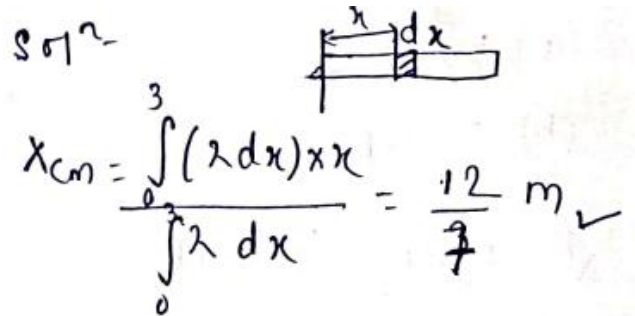 Solⁿ-
x dx
X_cm = ∫₀³ (λdx) × x / ∫₀³ λ dx = 12/7 m ✓